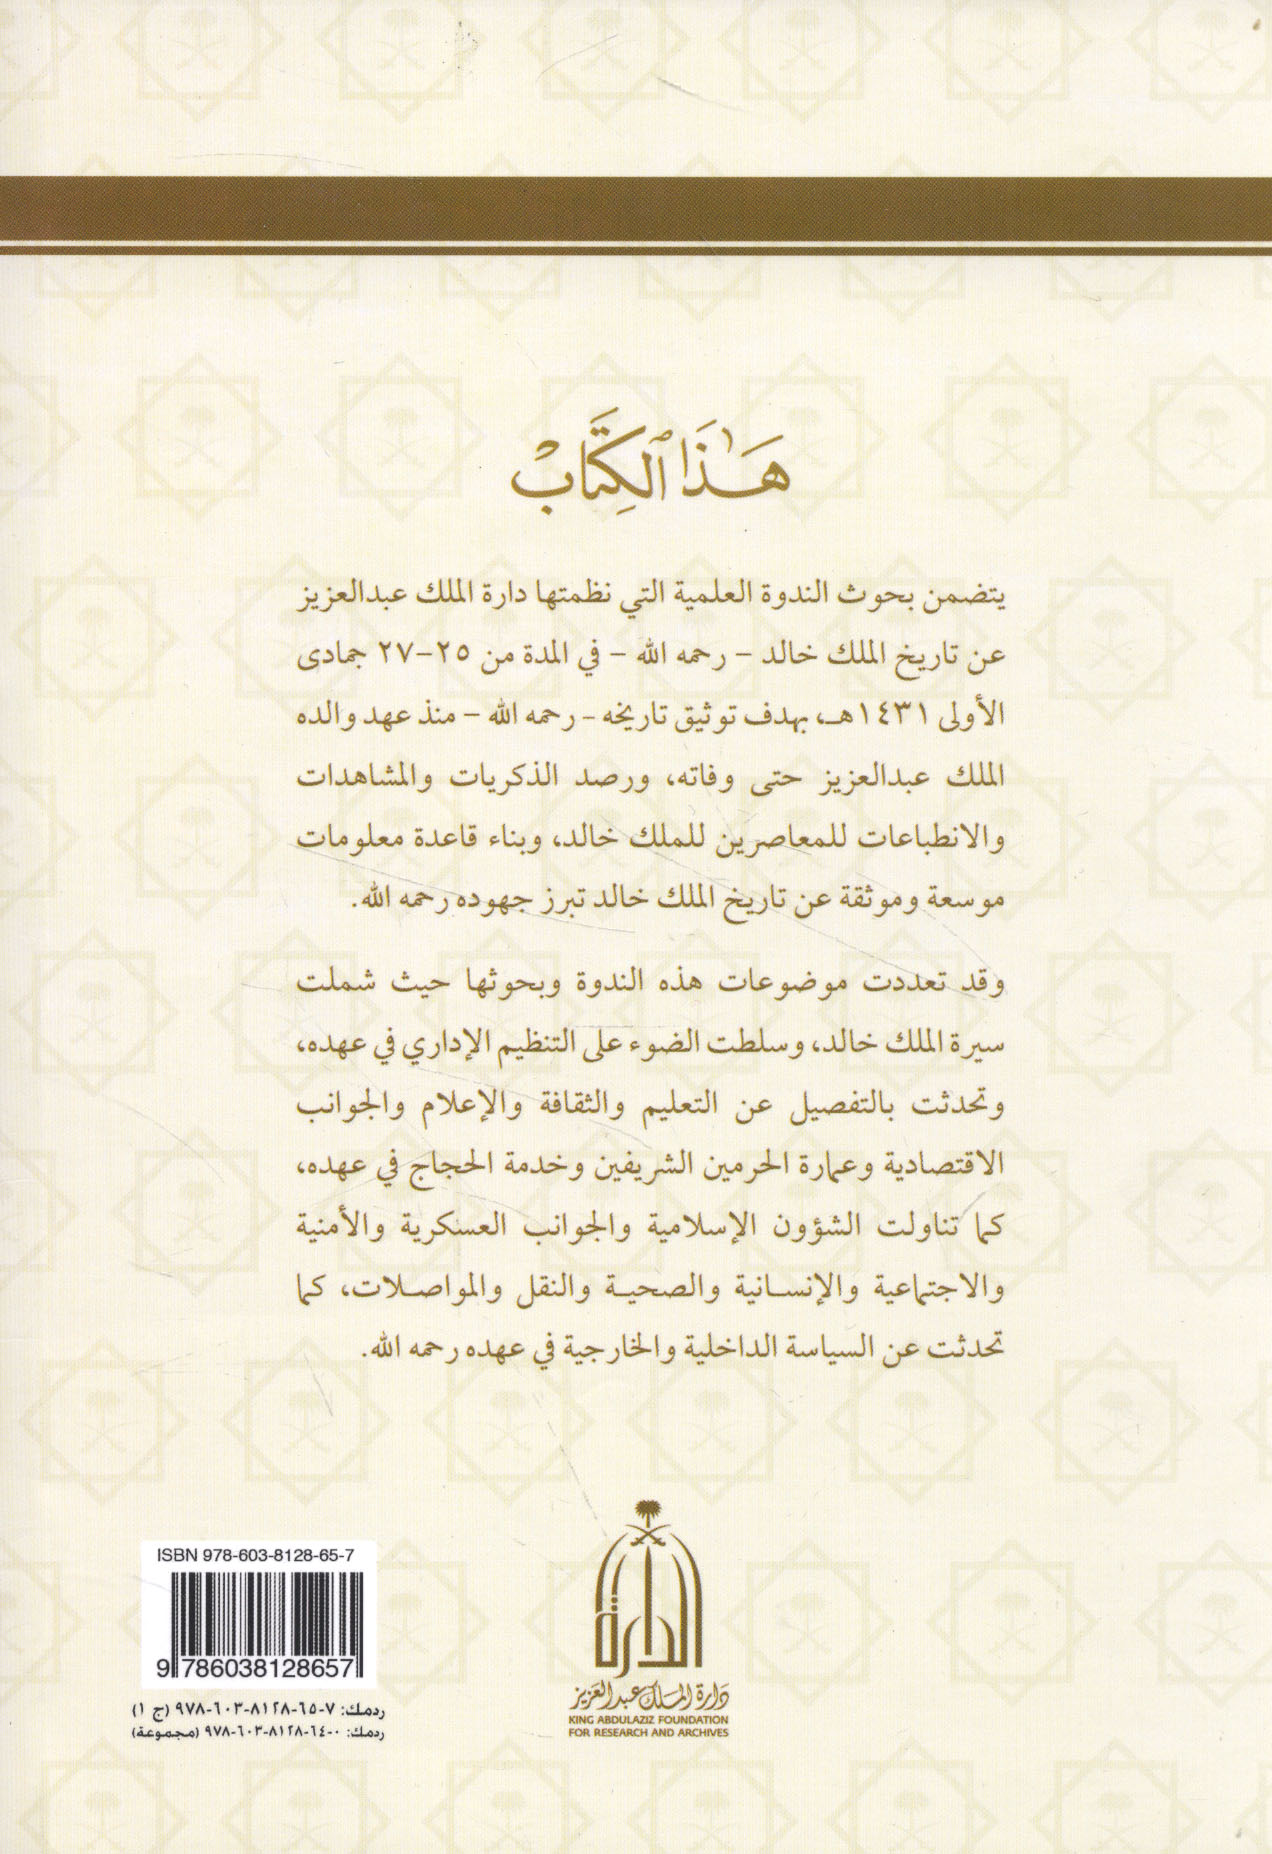 هَٰذَا ٱلكِتَابْ
يتضمن بحوث الندوة العلمية التي نظمتها دارة الملك عبدالعزيز
عن تاريخ الملك خالد – رحمه الله – في المدة من ٢٥–٢٧ جمادى
الأولى ١٤٣١هـ، بهدف توثيق تاريخه – رحمه الله – منذ عهد والده
الملك عبدالعزيز حتى وفاته، ورصد الذكريات والمشاهدات
والانطباعات للمعاصرين للملك خالد، وبناء قاعدة معلومات
موسعة وموثقة عن تاريخ الملك خالد تبرز جهوده رحمه الله.
وقد تعددت موضوعات هذه الندوة وبحوثها حيث شملت
سيرة الملك خالد، وسلطت الضوء على التنظيم الإداري في عهده،
وتحدثت بالتفصيل عن التعليم والثقافة والإعلام والجوانب
الاقتصادية وعمارة الحرمين الشريفين وخدمة الحجاج في عهده،
كما تناولت الشؤون الإسلامية والجوانب العسكرية والأمنية
والاجتماعية والإنسانية والصحية والنقل والمواصلات، كما
تحدثت عن السياسة الداخلية والخارجية في عهده رحمه الله.
الدارة
دارة الملك عبدالعزيز
KING ABDULAZIZ FOUNDATION
FOR RESEARCH AND ARCHIVES
ISBN 978-603-8128-65-7
9 786038 128657
ردمك: ٧-٦٥-٨١٢٨-٦٠٣-٩٧٨ (ج ١)
ردمك: ٠-٦٤-٨١٢٨-٦٠٣-٩٧٨ (مجموعة)